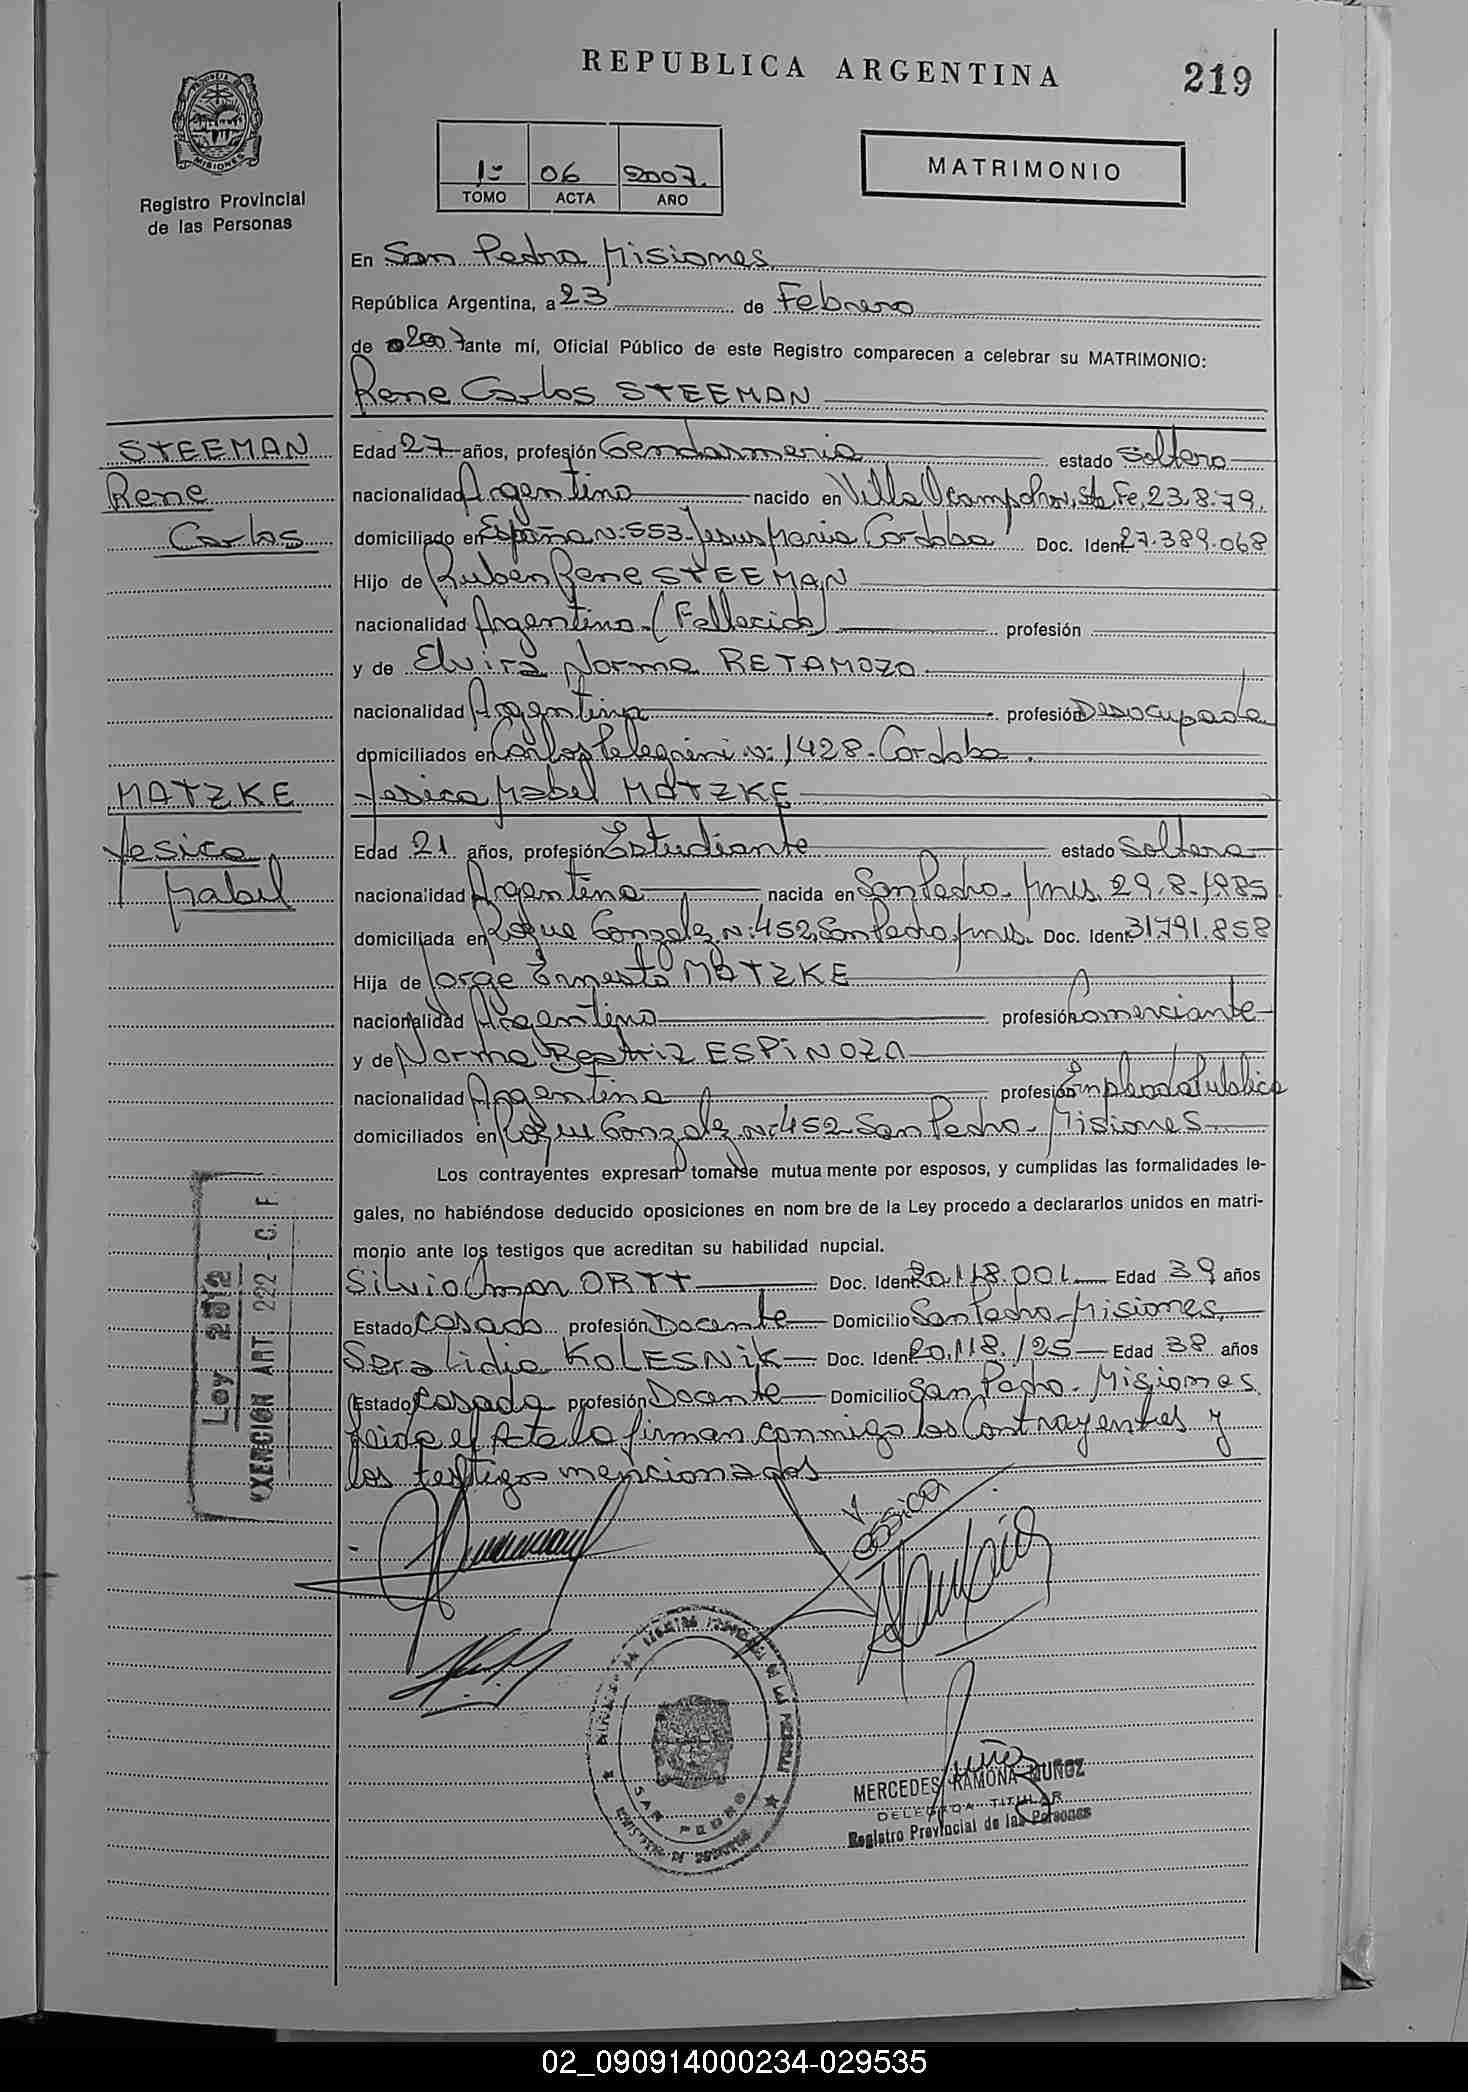 REPUBLICA ARGENTINA
219
PROVINCIA DE MISIONES
Registro Provincial
de las Personas
1º 06 2007.
TOMO ACTA AÑO
MATRIMONIO
En San Pedro Misiones
República Argentina, a 23 de Febrero
de 2007 ante mí, Oficial Público de este Registro comparecen a celebrar su MATRIMONIO:
Rene Carlos STEEMAN
STEEMAN
Rene
Carlos
Edad 27 años, profesión Gendarmeria estado Soltero
nacionalidad Argentino nacido en Villa Ocampo, Sta Fe, 23.8.79.
domiciliado en España Nº: 553 - Jesus Maria Cordoba Doc. Ident 27.389.068
Hijo de Ruben Rene STEEMAN
nacionalidad Argentino - (Fallecido) profesión
y de Elvira Norma RETAMOZO
nacionalidad Argentina profesión Desocupada
domiciliados en Carlos Pelegrini Nº: 1428 - Cordoba.
MATZKE
Yesica
Mabel
Yesica Mabel MATZKE
Edad 21 años, profesión Estudiante estado Soltera
nacionalidad Argentina nacida en San Pedro - Mnes. 29.8.1985
domiciliada en Roque Gonzalez Nº: 452, San Pedro, Mnes. Doc. Ident 31791.858
Hija de Jorge Ernesto MATZKE
nacionalidad Argentino profesión Comerciante
y de Norma Beatriz ESPINOZA
nacionalidad Argentina profesión Empleada Publica
domiciliados en Roque Gonzalez Nº: 452 San Pedro - Misiones
Los contrayentes expresan tomarse mutua mente por esposos, y cumplidas las formalidades le-
gales, no habiéndose deducido oposiciones en nom bre de la Ley procedo a declararlos unidos en matri-
monio ante los testigos que acreditan su habilidad nupcial.
Silvio Omar ORTT Doc. Ident 20.118.001 Edad 39 años
Estado Casado profesión Docente Domicilio San Pedro - Misiones,
Sera Lidia KOLESNiK Doc. Ident 20.118.125 Edad 38 años
Estado Casada profesión Docente Domicilio San Pedro - Misiones
Leida el Acta lo firman conmigo los Contrayentes y
los testigos mencionados
Ley 2012
EXENCION ART. 222 - C. F.
Yesica
SAN PEDRO
MERCEDES RAMONA MUÑOZ
DELEGADA TITULAR
Registro Provincial de las Personas
02_090914000234-029535